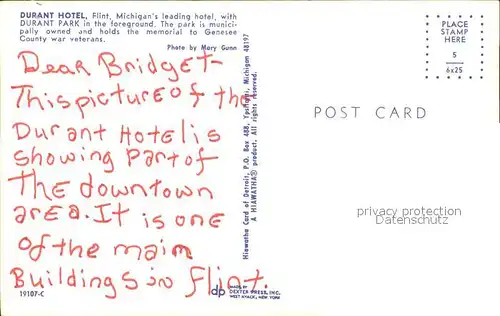 DURANT HOTEL, Flint, Michigan's leading hotel, with
DURANT PARK in the foreground. The park is munici-
pally owned and holds the memorial to Genesee
County war veterans.
Photo by Mary Gunn
Dear Bridget-
This picture of the
Durant Hotel is
showing part of
The downtown
area. It is one
of the main
Buildings in Flint.
19107-C
dp
MADE BY
DEXTER PRESS, INC.
WEST NYACK, NEW YORK
Hiawatha Card of Detroit, P.O. Box 488, Ypsilanti, Michigan 48197
A HIAWATHA® product. All rights reserved.
PLACE
STAMP
HERE
5
6x25
POST CARD
privacy protection
Datenschutz